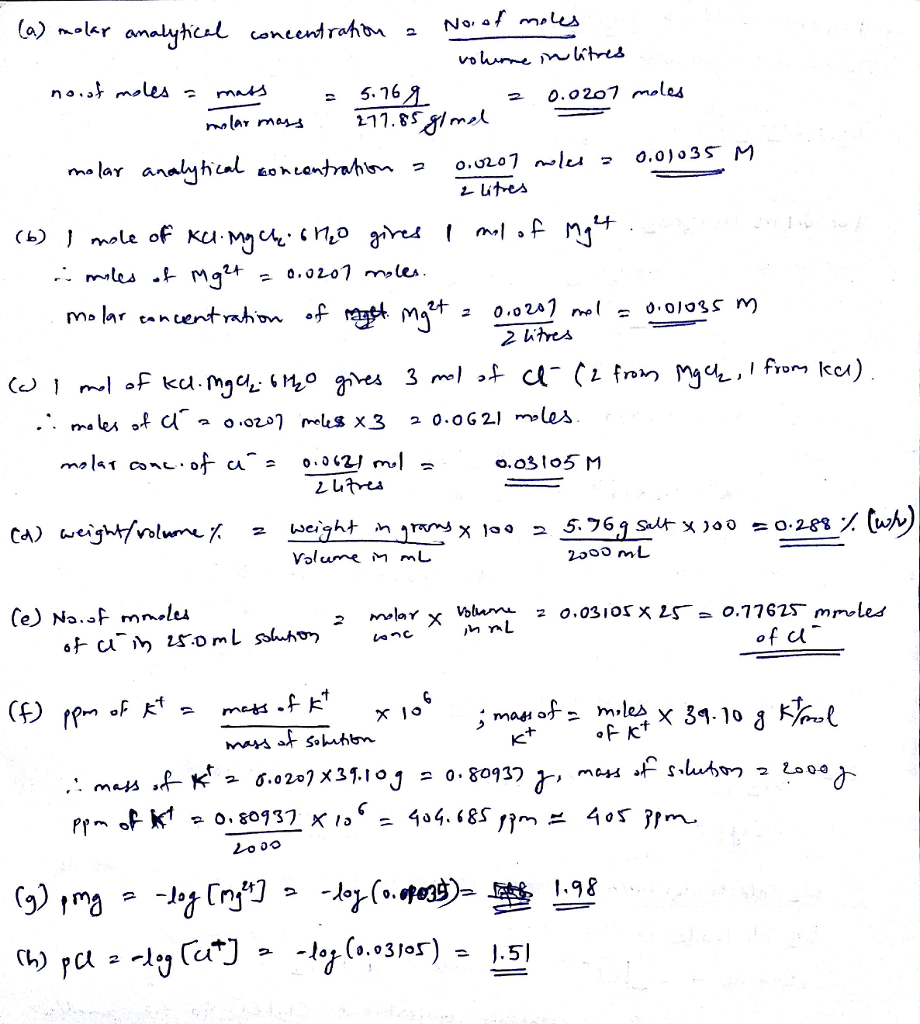 (a) molar analytical concentration = No. of moles
volume in litres
no. of moles = mass = 5.76 g = 0.0207 moles
molar mass 277.85 g/mol
molar analytical concentration = 0.0207 moles = 0.01035 M
2 litres
(b) 1 mole of KCl.MgCl2.6H2O gives 1 mol of Mg2+.
∴ moles of Mg2+ = 0.0207 moles.
molar concentration of Mg2+ = 0.0207 mol = 0.01035 M
2 litres
(c) 1 mol of KCl.MgCl2.6H2O gives 3 mol of Cl- (2 from MgCl2, 1 from KCl).
∴ moles of Cl- = 0.0207 moles x 3 = 0.0621 moles.
molar conc. of Cl- = 0.0621 mol = 0.03105 M
2 litres
(d) weight/volume % = weight in grams x 100 = 5.76g salt x 100 = 0.288 % (w/v)
volume in mL 2000 mL
(e) No. of mmoles = molar x volume = 0.03105 x 25 = 0.77625 mmoles
of Cl- in 25.0 mL solution conc in mL of Cl-
(f) ppm of K+ = mass of K+ x 10^6 ; mass of = moles x 39.10 g K+/mol
mass of solution K+ of K+
∴ mass of K+ = 0.0207 x 39.10 g = 0.80937 g, mass of solution = 2000 g
ppm of K+ = 0.80937 x 10^6 = 404.685 ppm ≈ 405 ppm
2000
(g) pMg = -log [Mg2+] = -log (0.01035) = 1.98
(h) pCl = -log [Cl+] = -log (0.03105) = 1.51